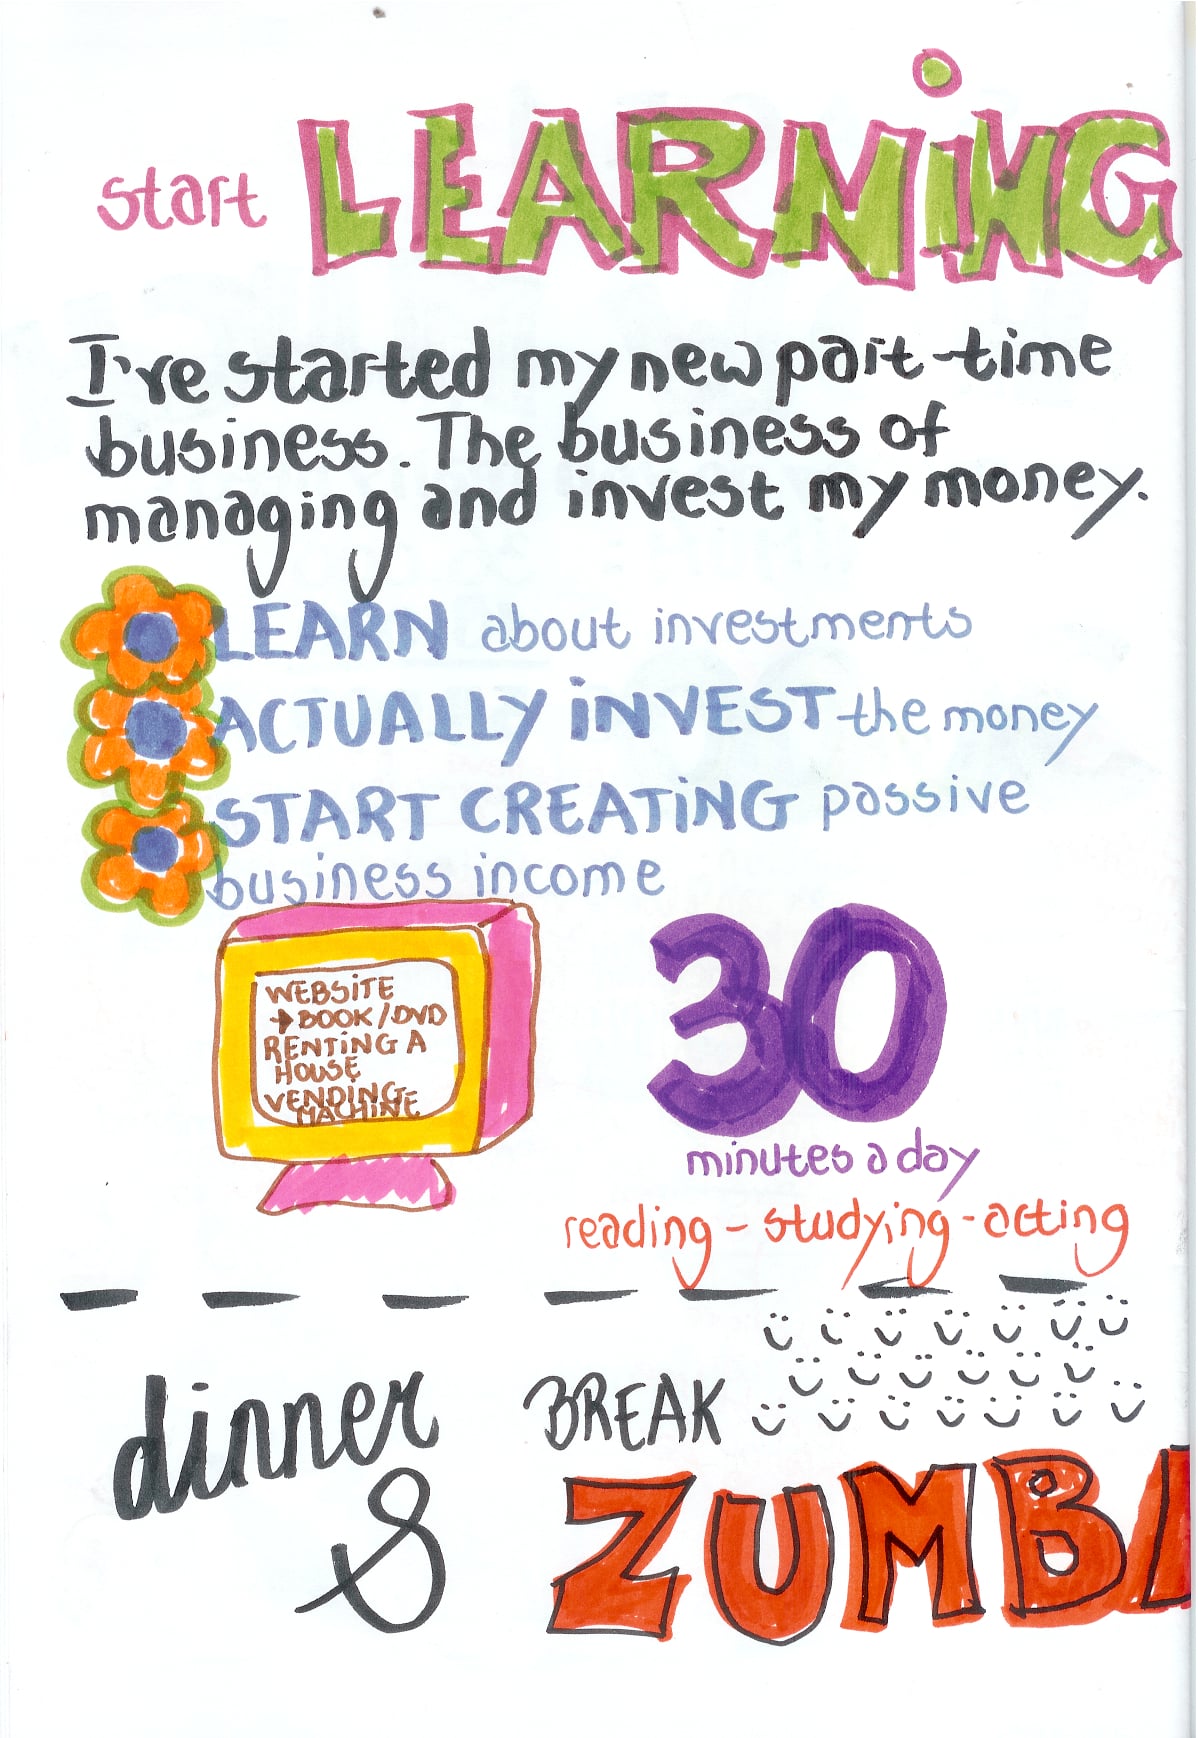 start LEARNiNG
I've started my new part-time
business. The business of
managing and invest my money.
LEARN about investments
ACTUALLY iNVEST the money
START CREATiNG passive
business income
WEBSiTE
→BOOK/DVD
RENTiNG A
HOUSE
VENDiNG
MACHiNE
30
minutes a day
reading - studying - acting
dinner
&
BREAK
ZUMBA